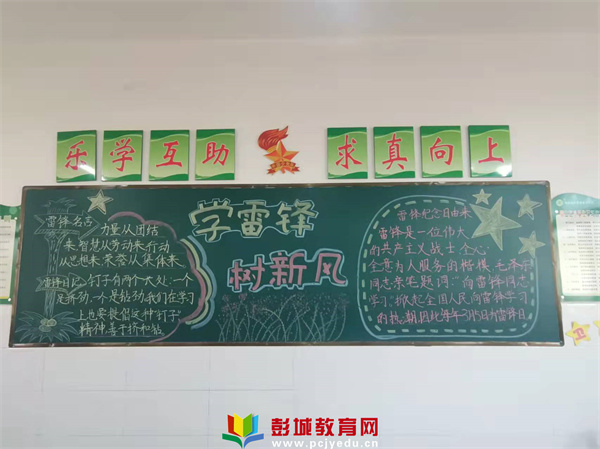 乐学互助
求真向上
学雷锋
树新风
雷锋名言
力量从团结
来,智慧从劳动来,行动
从思想来,荣誉从集体来
雷锋日记:钉子有两个长处:一个
是挤劲,一个是钻劲,我们在学习
上也要提倡这种"钉子"
精神善于挤和钻
雷锋纪念日由来
雷锋是一位伟大
的共产主义战士,全心
全意为人服务的楷模,毛泽东
同志亲笔题词:"向雷锋同志
学习"掀起全国人民向雷锋学习
的热潮,因此每年3月5日为雷锋日
彭城教育网
www.pcjyedu.cn